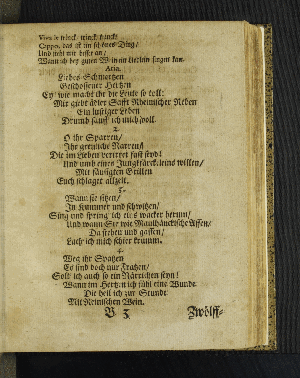 Cuppen das ist ein schönes Ding/
Und steht mir besser an/
Wann ich bey guten Wein ein Liedlein singen kan.
Aria.
Liebes-Schmertzen
Geschossener Hertzen
Ey/ wie macht ihr die Leute so toll:
Mir giebt edler Safft Rheinischer Reben
Ein lustiger Leben
Drumb sauff ich mich voll.
2.
O ihr Sparren/
Ihr Narren/
Die im Lieben verirret fast seyd!
Und umb eines willen/
Mit Grillen
Euch schlaget allzeit.
3.
Wann sie sitzen/
In Kummer und schwitzen/
Sing und spring ich wacker herum/
Und wann Sie wie Affen/
Da stehen und gaffen/
Lach ich mich schier krumm.
4.
Weg ihr Spatzen
Es sind doch nur Fratzen/
Solt ich auch so ein Närrichen seyn!
Wann im Hertzen ich fühl eine Wunde
Die heil ich zur Stunde
Mit Reinischen Wein.
B. 3 Zwölff-